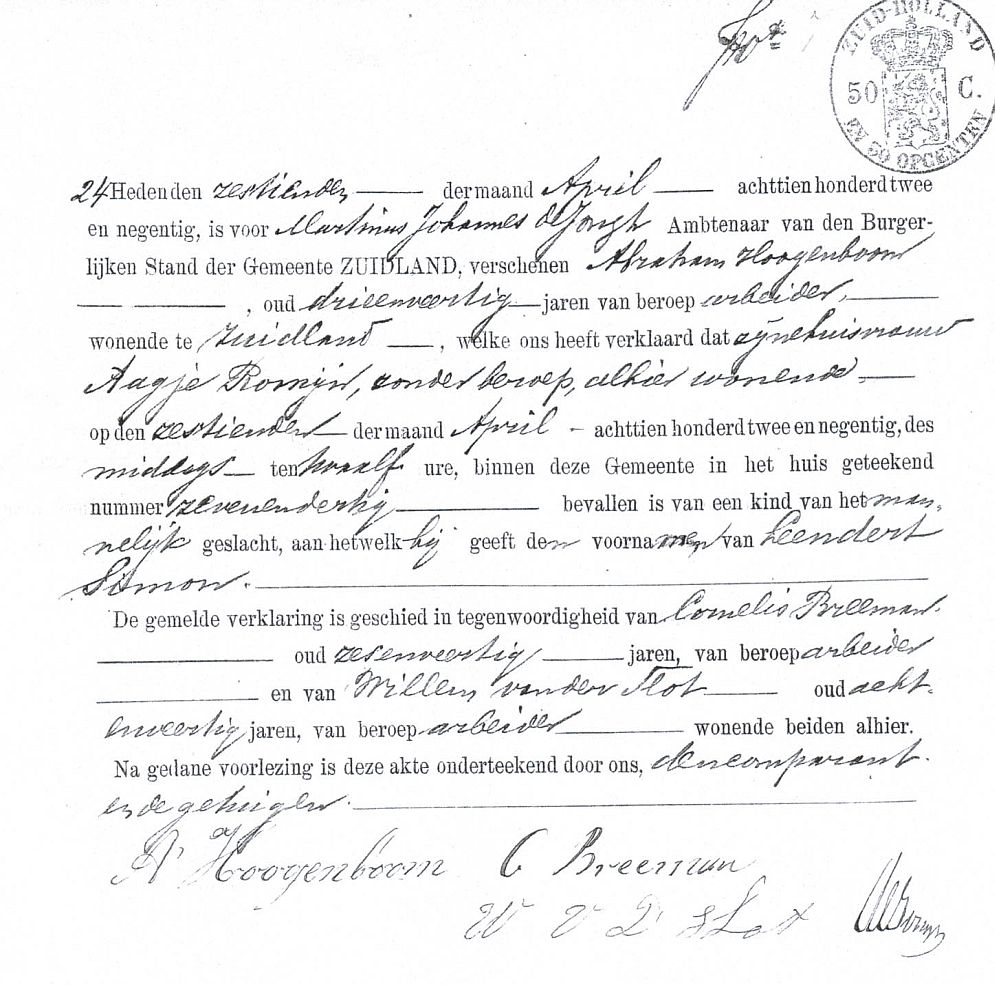 ZUID-HOLLAND
50 C.
EN 50 OPCENTEN
24 Heden den zestienden der maand April achttien honderd twee
en negentig, is voor Martinus Johannes de Jongh Ambtenaar van den Burger-
lijken Stand der Gemeente ZUIDLAND, verschenen Abraham Hoogenboom
, oud drieenveertig jaren van beroep arbeider,
wonende te Zuidland , welke ons heeft verklaard dat zijne huisvrouw
Aagje Romijn, zonder beroep, alhier wonende
op den zestienden der maand April - achttien honderd twee en negentig, des
middags ten twaalf ure, binnen deze Gemeente in het huis geteekend
nummer zevenendertig bevallen is van een kind van het man-
nelijk geslacht, aan hetwelk hij geeft den voornamen van Leendert
Simon.
De gemelde verklaring is geschied in tegenwoordigheid van Cornelis Breeman
oud zesenveertig jaren, van beroep arbeider
en van Willem van der Slot oud acht-
enveertig jaren, van beroep arbeider wonende beiden alhier.
Na gedane voorlezing is deze akte onderteekend door ons, den comparant
en de getuigen.
A Hoogenboom C Breeman
W V D Slot